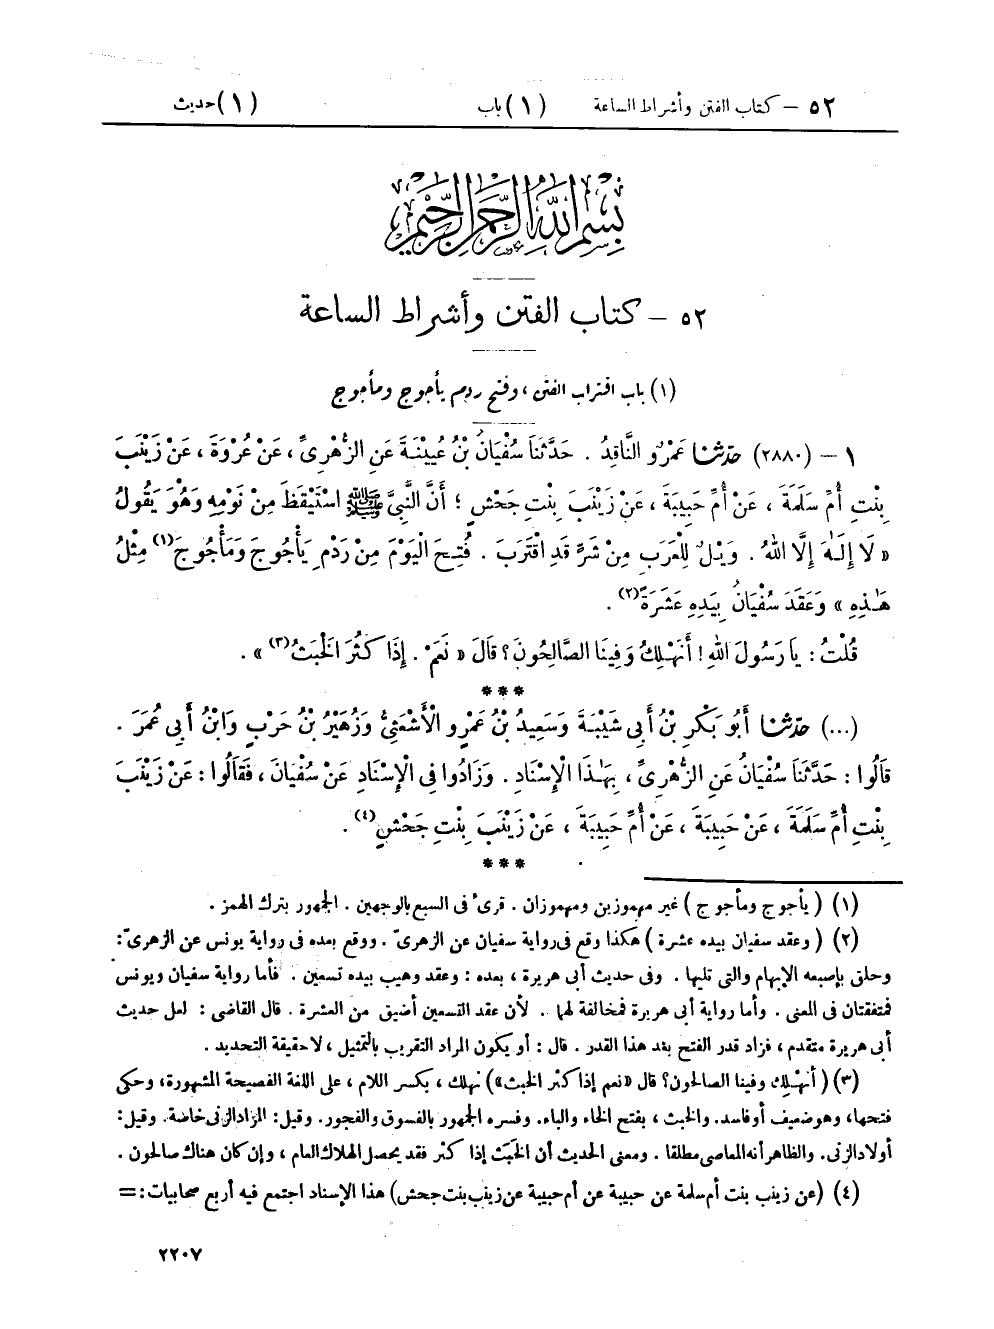 ٥٢ – كتاب الفتن وأشراط الساعة (١) باب (١) حديث
بِسْمِ اللَّهِ الرَّحْمَنِ الرَّحِيمِ
٥٢ – كتاب الفتن وأشراط الساعة
(١) باب اقتراب الفتن ، وفتح ردم يأجوج ومأجوج
١ – (٢٨٨٠) حَدَّثَنَا عَمْرٌو النَّاقِدُ . حَدَّثَنَا سُفْيَانُ بْنُ عُيَيْنَةَ عَنِ الزُّهْرِىِّ ، عَنْ عُرْوَةَ ، عَنْ زَيْنَبَ
بِنْتِ أُمِّ سَلَمَةَ ، عَنْ أُمِّ حَبِيبَةَ ، عَنْ زَيْنَبَ بِنْتِ جَحْشٍ ؛ أَنَّ النَّبِىَّ ﷺ اسْتَيْقَظَ مِنْ نَوْمِهِ وَهُوَ يَقُولُ
« لَا إِلَـٰهَ إِلَّا اللهُ . وَيْلٌ لِلْعَرَبِ مِنْ شَرٍّ قَدِ اقْتَرَبَ . فُتِحَ الْيَوْمَ مِنْ رَدْمِ يَأْجُوجَ وَمَأْجُوجَ(١) مِثْلُ
هَـٰذِهِ » وَعَقَدَ سُفْيَانُ بِيَدِهِ عَشَرَةً(٢) .
قُلْتُ : يَا رَسُولَ اللهِ ! أَنَهْلِكُ وَفِينَا الصَّالِحُونَ ؟ قَالَ « نَعَمْ . إِذَا كَثُرَ الْخَبَثُ(٣) » .
***
(...) حَدَّثَنَا أَبُو بَكْرِ بْنُ أَبِى شَيْبَةَ وَسَعِيدُ بْنُ عَمْرٍو الْأَشْعَثِىُّ وَزُهَيْرُ بْنُ حَرْبٍ وَابْنُ أَبِى عُمَرَ .
قَالُوا : حَدَّثَنَا سُفْيَانُ عَنِ الزُّهْرِىِّ ، بِهَـٰذَا الْإِسْنَادِ . وَزَادُوا فِى الْإِسْنَادِ عَنْ سُفْيَانَ ، فَقَالُوا : عَنْ زَيْنَبَ
بِنْتِ أُمِّ سَلَمَةَ ، عَنْ حَبِيبَةَ ، عَنْ أُمِّ حَبِيبَةَ ، عَنْ زَيْنَبَ بِنْتِ جَحْشٍ(٤) .
***
(١) ( يأجوج ومأجوج ) غير مهموزين ومهموزان . قرئ فى السبع بالوجهين . الجمهور بترك الهمز .
(٢) ( وعقد سفيان بيده عشرة ) هكذا وقع فى رواية سفيان عن الزهرىّ . ووقع بعده فى رواية يونس عن الزهرىّ :
وحلق بإصبعه الإبهام والتى تليها . وفى حديث أبى هريرة ، بعده : وعقد وهيب بيده تسعين . فأما رواية سفيان ويونس
فمتفقتان فى المعنى . وأما رواية أبى هريرة فمخالفة لهما . لأن عقد التسعين أضيق من العشرة . قال القاضى : لعل حديث
أبى هريرة متقدم ، فزاد قدر الفتح بعد هذا القدر . قال : أو يكون المراد التقريب بالتمثيل ، لا حقيقة التحديد .
(٣) ( أنهلك وفينا الصالحون ؟ قال «نعم إذا كثر الخبث») نهلك ، بكسر اللام ، على اللغة الفصيحة المشهورة ، وحكى
فتحها، وهو ضعيف أو فاسد. والخبث ، بفتح الخاء والباء. وفسره الجمهور بالفسوق والفجور. وقيل: المراد الزنى خاصة. وقيل:
أولاد الزنى. والظاهر أنه المعاصى مطلقا . ومعنى الحديث أن الخَبَث إذا كثر فقد يحصل الهلاك العام ، وإن كان هناك صالحون .
(٤) (عن زينب بنت أم سلمة عن حبيبة عن أم حبيبة عن زينب بنت جحش) هذا الإسناد اجتمع فيه أربع صحابيات : =
٢٢٠٧